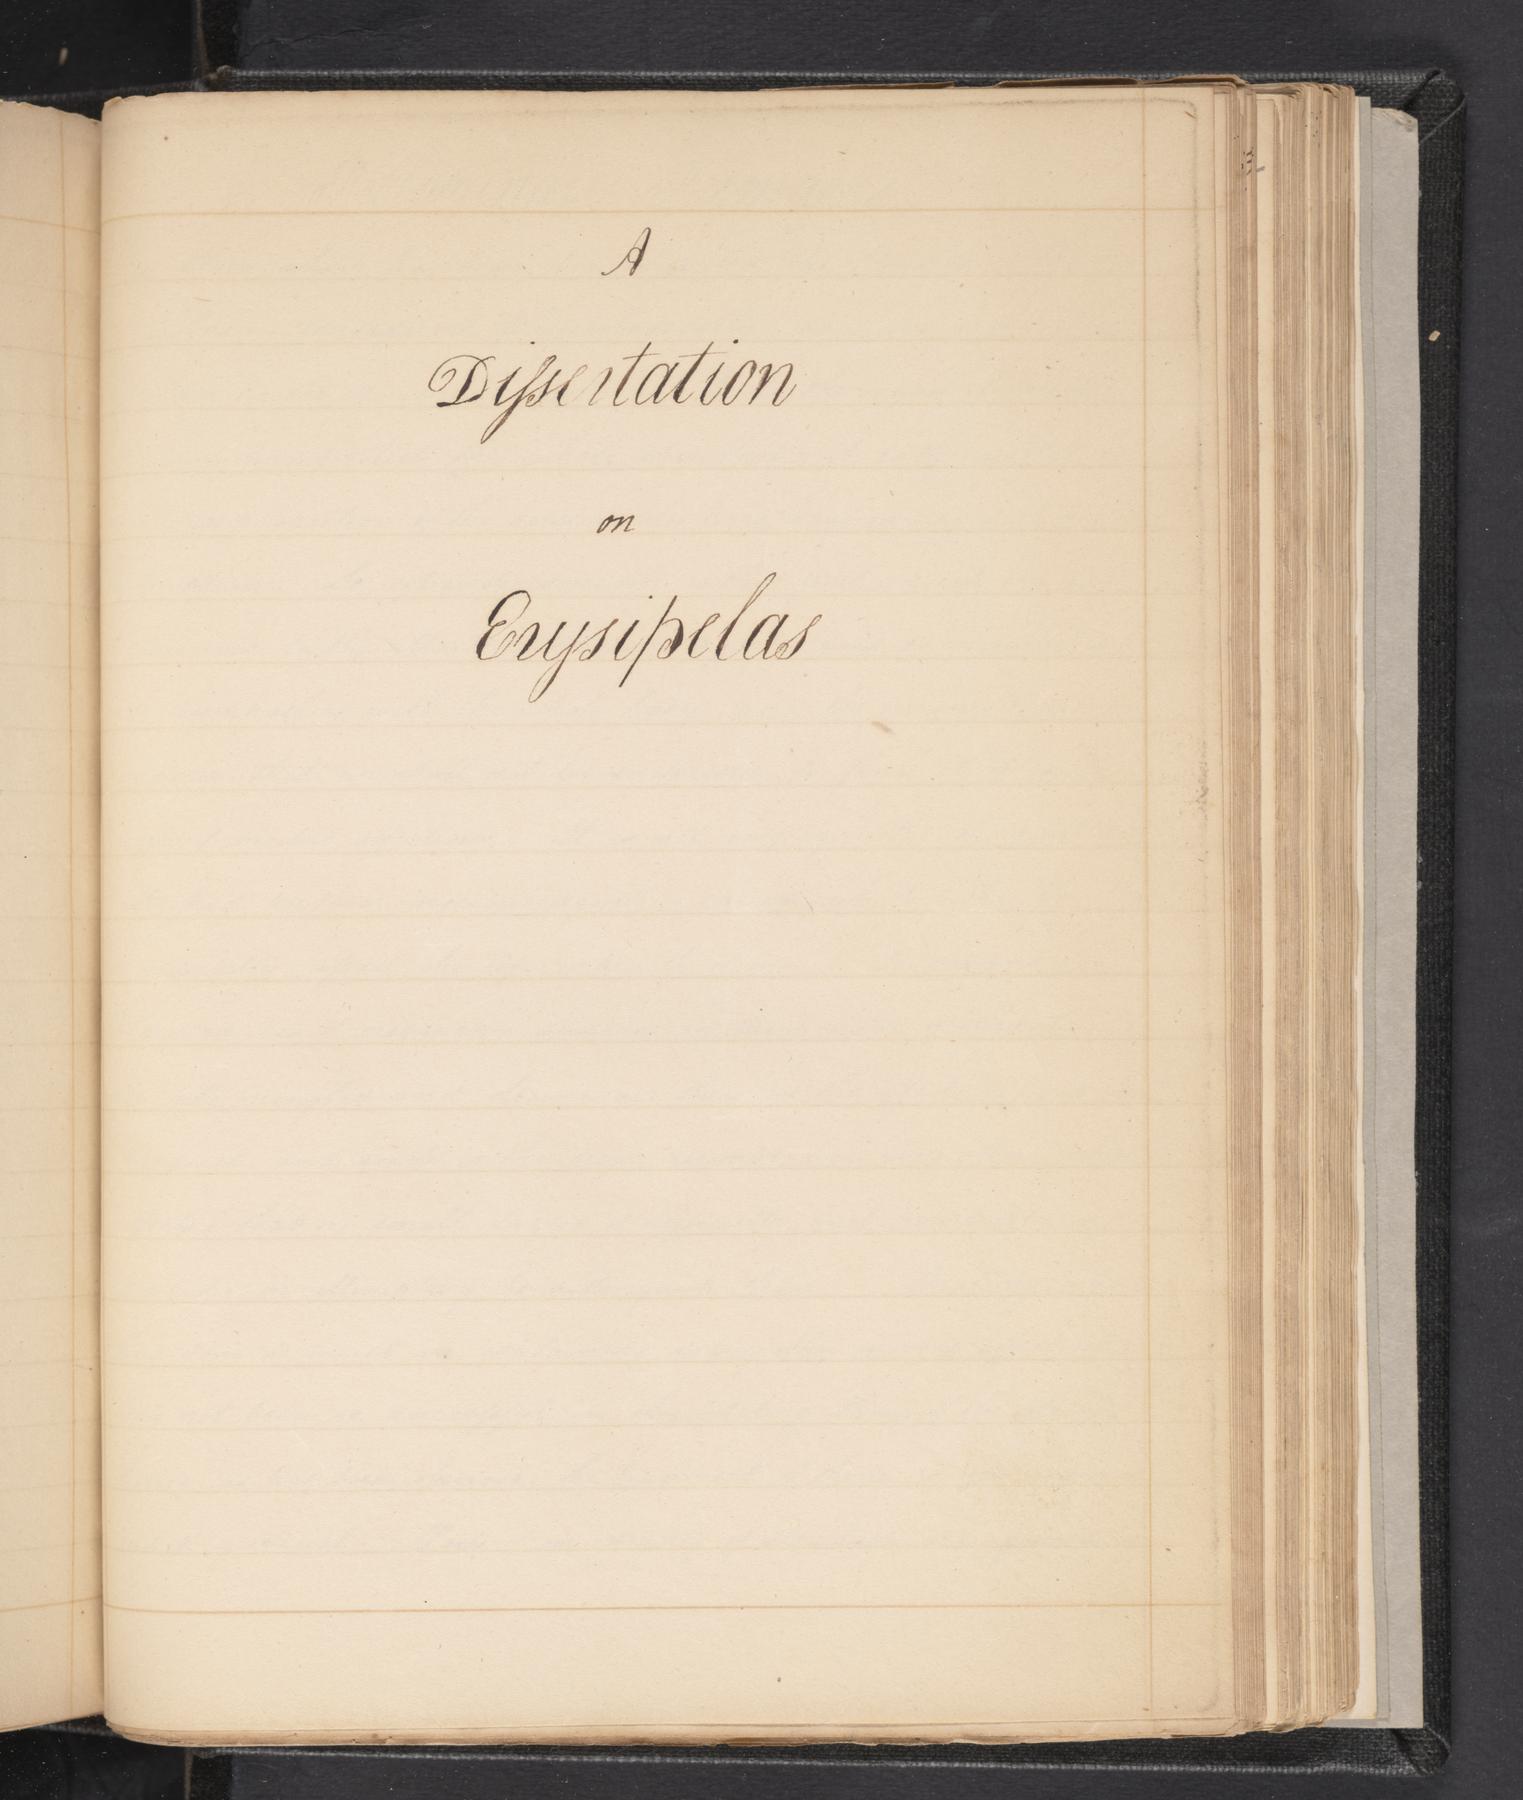 A
Dissertation
on
Erysipelas